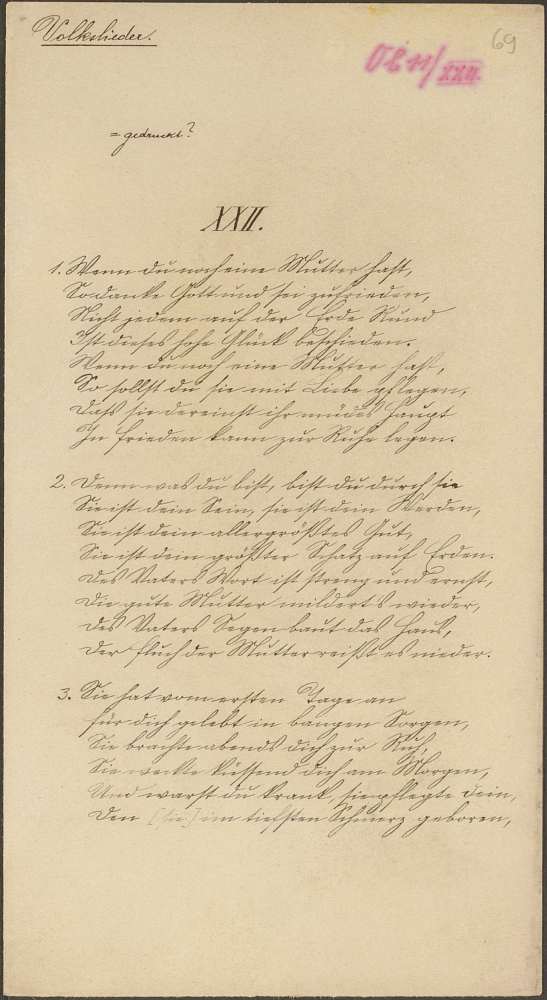 Volkslieder.
69
XXII.
= gedruckt?
XXII.
1. Wenn du noch eine Mutter hast,
So danke Gott und sei zufrieden,
Nicht jedem auf der Erde Rund
Ist dieses hohe Glück beschieden.
Wenn du noch eine Mutter hast,
So sollst du sie mit Liebe pflegen,
Daß sie dereinst ihr müdes Haupt
In Frieden kann zur Ruhe legen.
2. Denn was du bist, bist du durch sie
Sie ist dein Sein, sie ist dein Werden,
Sie ist dein allergrößtes Gut,
Sie ist dein größter Schatz auf Erden.
Des Vaters Wort ist streng und ernst,
Die gute Mutter mildert's wieder,
Des Vaters Segen baut das Haus,
Der Fluch der Mutter reißt es nieder.
3. Sie hat vom ersten Tage an
für dich gelebt in bangen Sorgen,
Sie brachte abends dich zur Ruh,
Sie weckte küssend dich am Morgen,
Und warst du krank, sie pflegte dein,
Den (sie) im tiefsten Schmerz geboren,